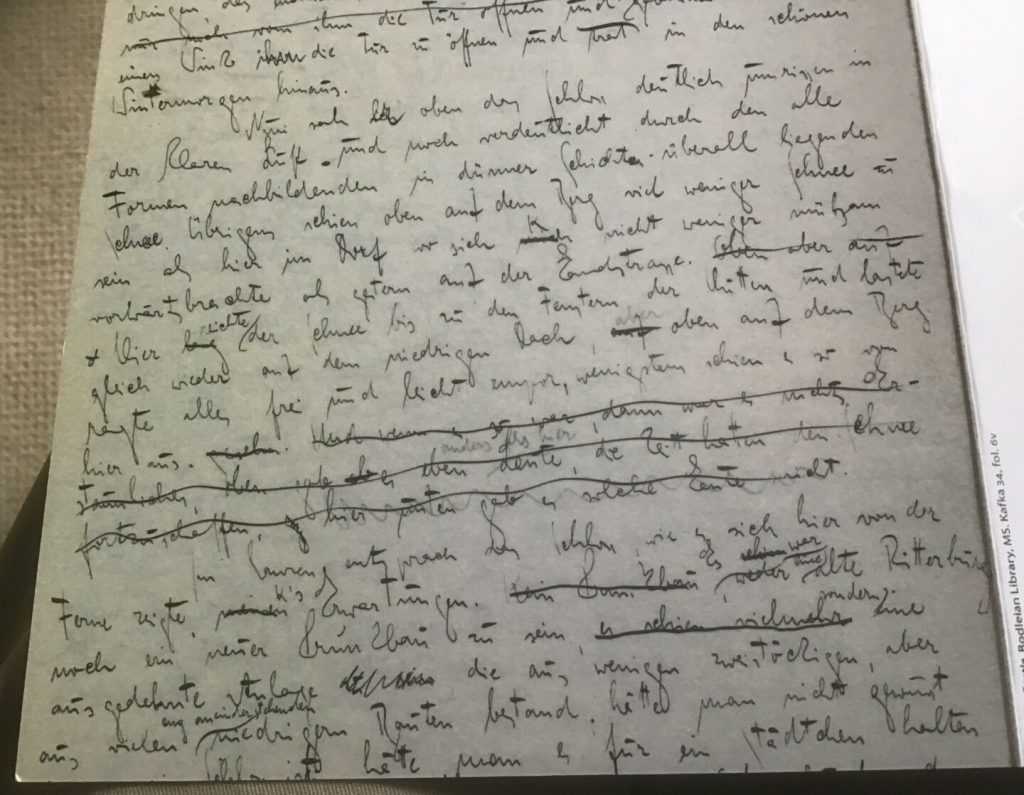 dringen, des
nur noch vom ihm die Tür öffnen und
einen Wink ihm die Tür zu öffnen und trat in den schönen
Wintermorgen hinaus.
Nun sah er oben das Schloss deutlich umrissen in
der klaren Luft und noch verdeutlicht durch den alle
Formen nachbildenden in dünner Schichte überall liegenden
Schnee. Übrigens schien oben auf dem Berg viel weniger Schnee zu
sein als hier im Dorf wo sich K. nicht weniger mühsam
vorwärtsbrachte als gestern auf der Landstrasse. Oben aber auf
Hier lag reichte der Schnee bis zu den Fenstern der Hütten und lastete
gleich wieder auf dem niedrigen Dach, aber oben auf dem Berg
ragte alles frei und leicht empor, wenigstens schien es so von
hier aus. Und wenn es so war, dann war es nichts Er-
staunliches, oben gab es eben Leute, die Zeit hatten den Schnee
anders als hier
fortzuschaffen, hier unten gab es solche Leute nicht.
Im Ganzen entsprach das Schloss, wie es sich hier von der
Ferne zeigte, K's Erwartungen. Es war weder eine alte Ritterburg
noch ein neuer Prunkbau zu sein, es schien vielmehr sondern eine
ausgedehnte Anlage die aus wenigen zweistöckigen, aber
aus vielen eng aneinanderstehenden niedrigern Bauten bestand; hätte man nicht gewusst
Schloss ist hätte man es für ein Städtchen halten
Bodleian Library, MS. Kafka 34, fol. 6v